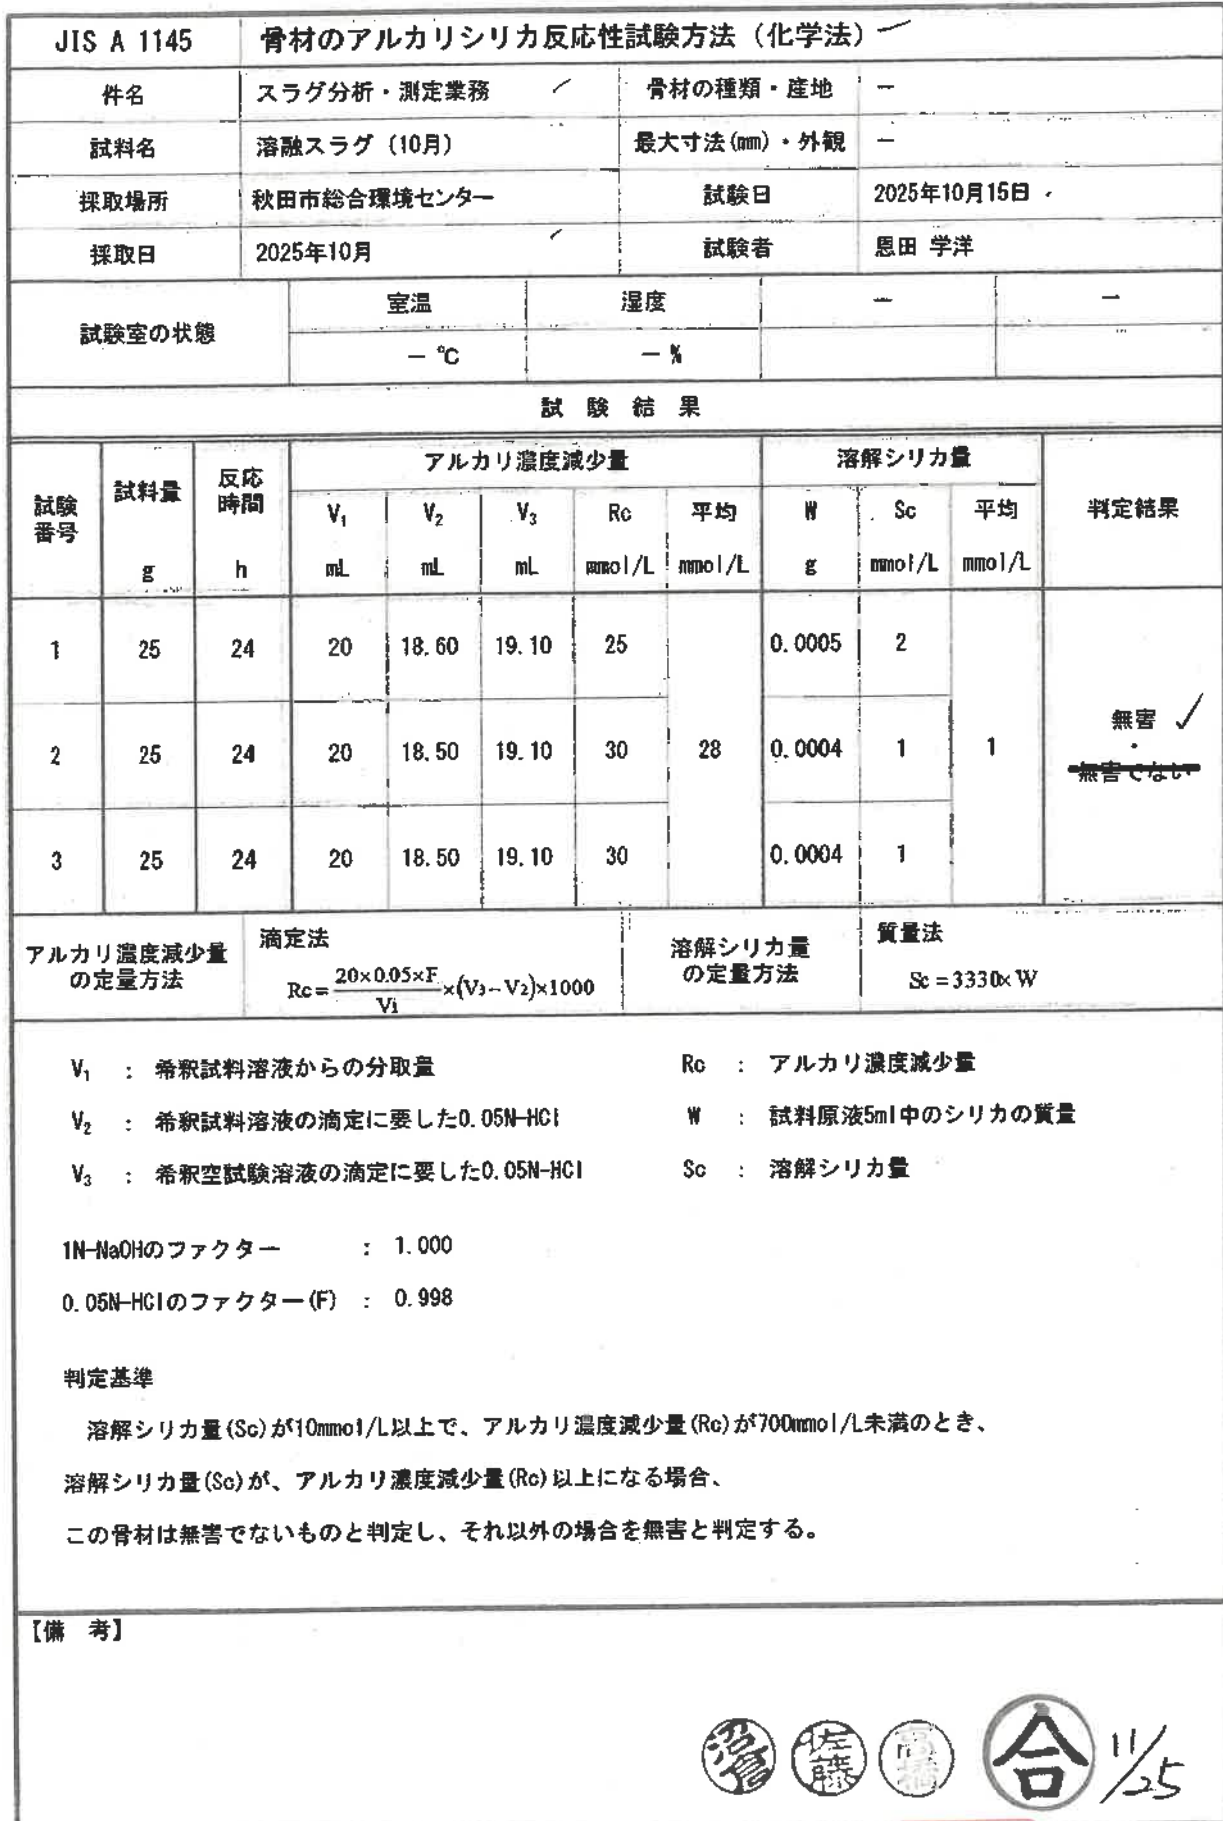 JIS A 1145 骨材のアルカリシリカ反応性試験方法（化学法）
件名 スラグ分析・測定業務 骨材の種類・産地 ー
試料名 溶融スラグ（10月） 最大寸法(mm)・外観 ー
採取場所 秋田市総合環境センター 試験日 2025年10月15日
採取日 2025年10月 試験者 恩田 学洋
試験室の状態 室温 湿度 ー ー
ー ℃ ー %
試 験 結 果
試験番号 試料量 g 反応時間 h アルカリ濃度減少量 溶解シリカ量 判定結果
V₁ mL V₂ mL V₃ mL Rc mmol/L 平均 mmol/L W g Sc mmol/L 平均 mmol/L
1 25 24 20 18.60 19.10 25 0.0005 2
2 25 24 20 18.50 19.10 30 28 0.0004 1 1
無害 ✓
・
無害でない
3 25 24 20 18.50 19.10 30 0.0004 1
アルカリ濃度減少量の定量方法 滴定法 Rc=20×0.05×F/V1×(V3−V2)×1000 溶解シリカ量の定量方法 質量法 Sc=3330×W
V₁ : 希釈試料溶液からの分取量 Rc : アルカリ濃度減少量
V₂ : 希釈試料溶液の滴定に要した0.05N-HCl W : 試料原液5ml中のシリカの質量
V₃ : 希釈空試験溶液の滴定に要した0.05N-HCl Sc : 溶解シリカ量
1N-NaOHのファクター : 1.000
0.05N-HClのファクター(F) : 0.998
判定基準
溶解シリカ量(Sc)が10mmol/L以上で、アルカリ濃度減少量(Rc)が700mmol/L未満のとき、
溶解シリカ量(Sc)が、アルカリ濃度減少量(Rc)以上になる場合、
この骨材は無害でないものと判定し、それ以外の場合を無害と判定する。
【備 考】
沼倉 佐藤 高橋 合 11/25